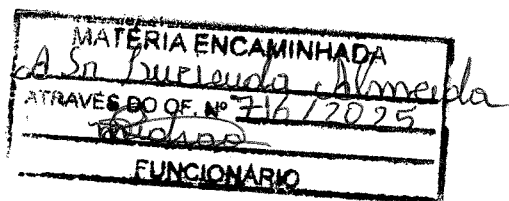 MATÉRIA ENCAMINHADA
A Sr Lucienda Almeida
ATRAVÉS DO OF. Nº 716/2025
FUNCIONÁRIO